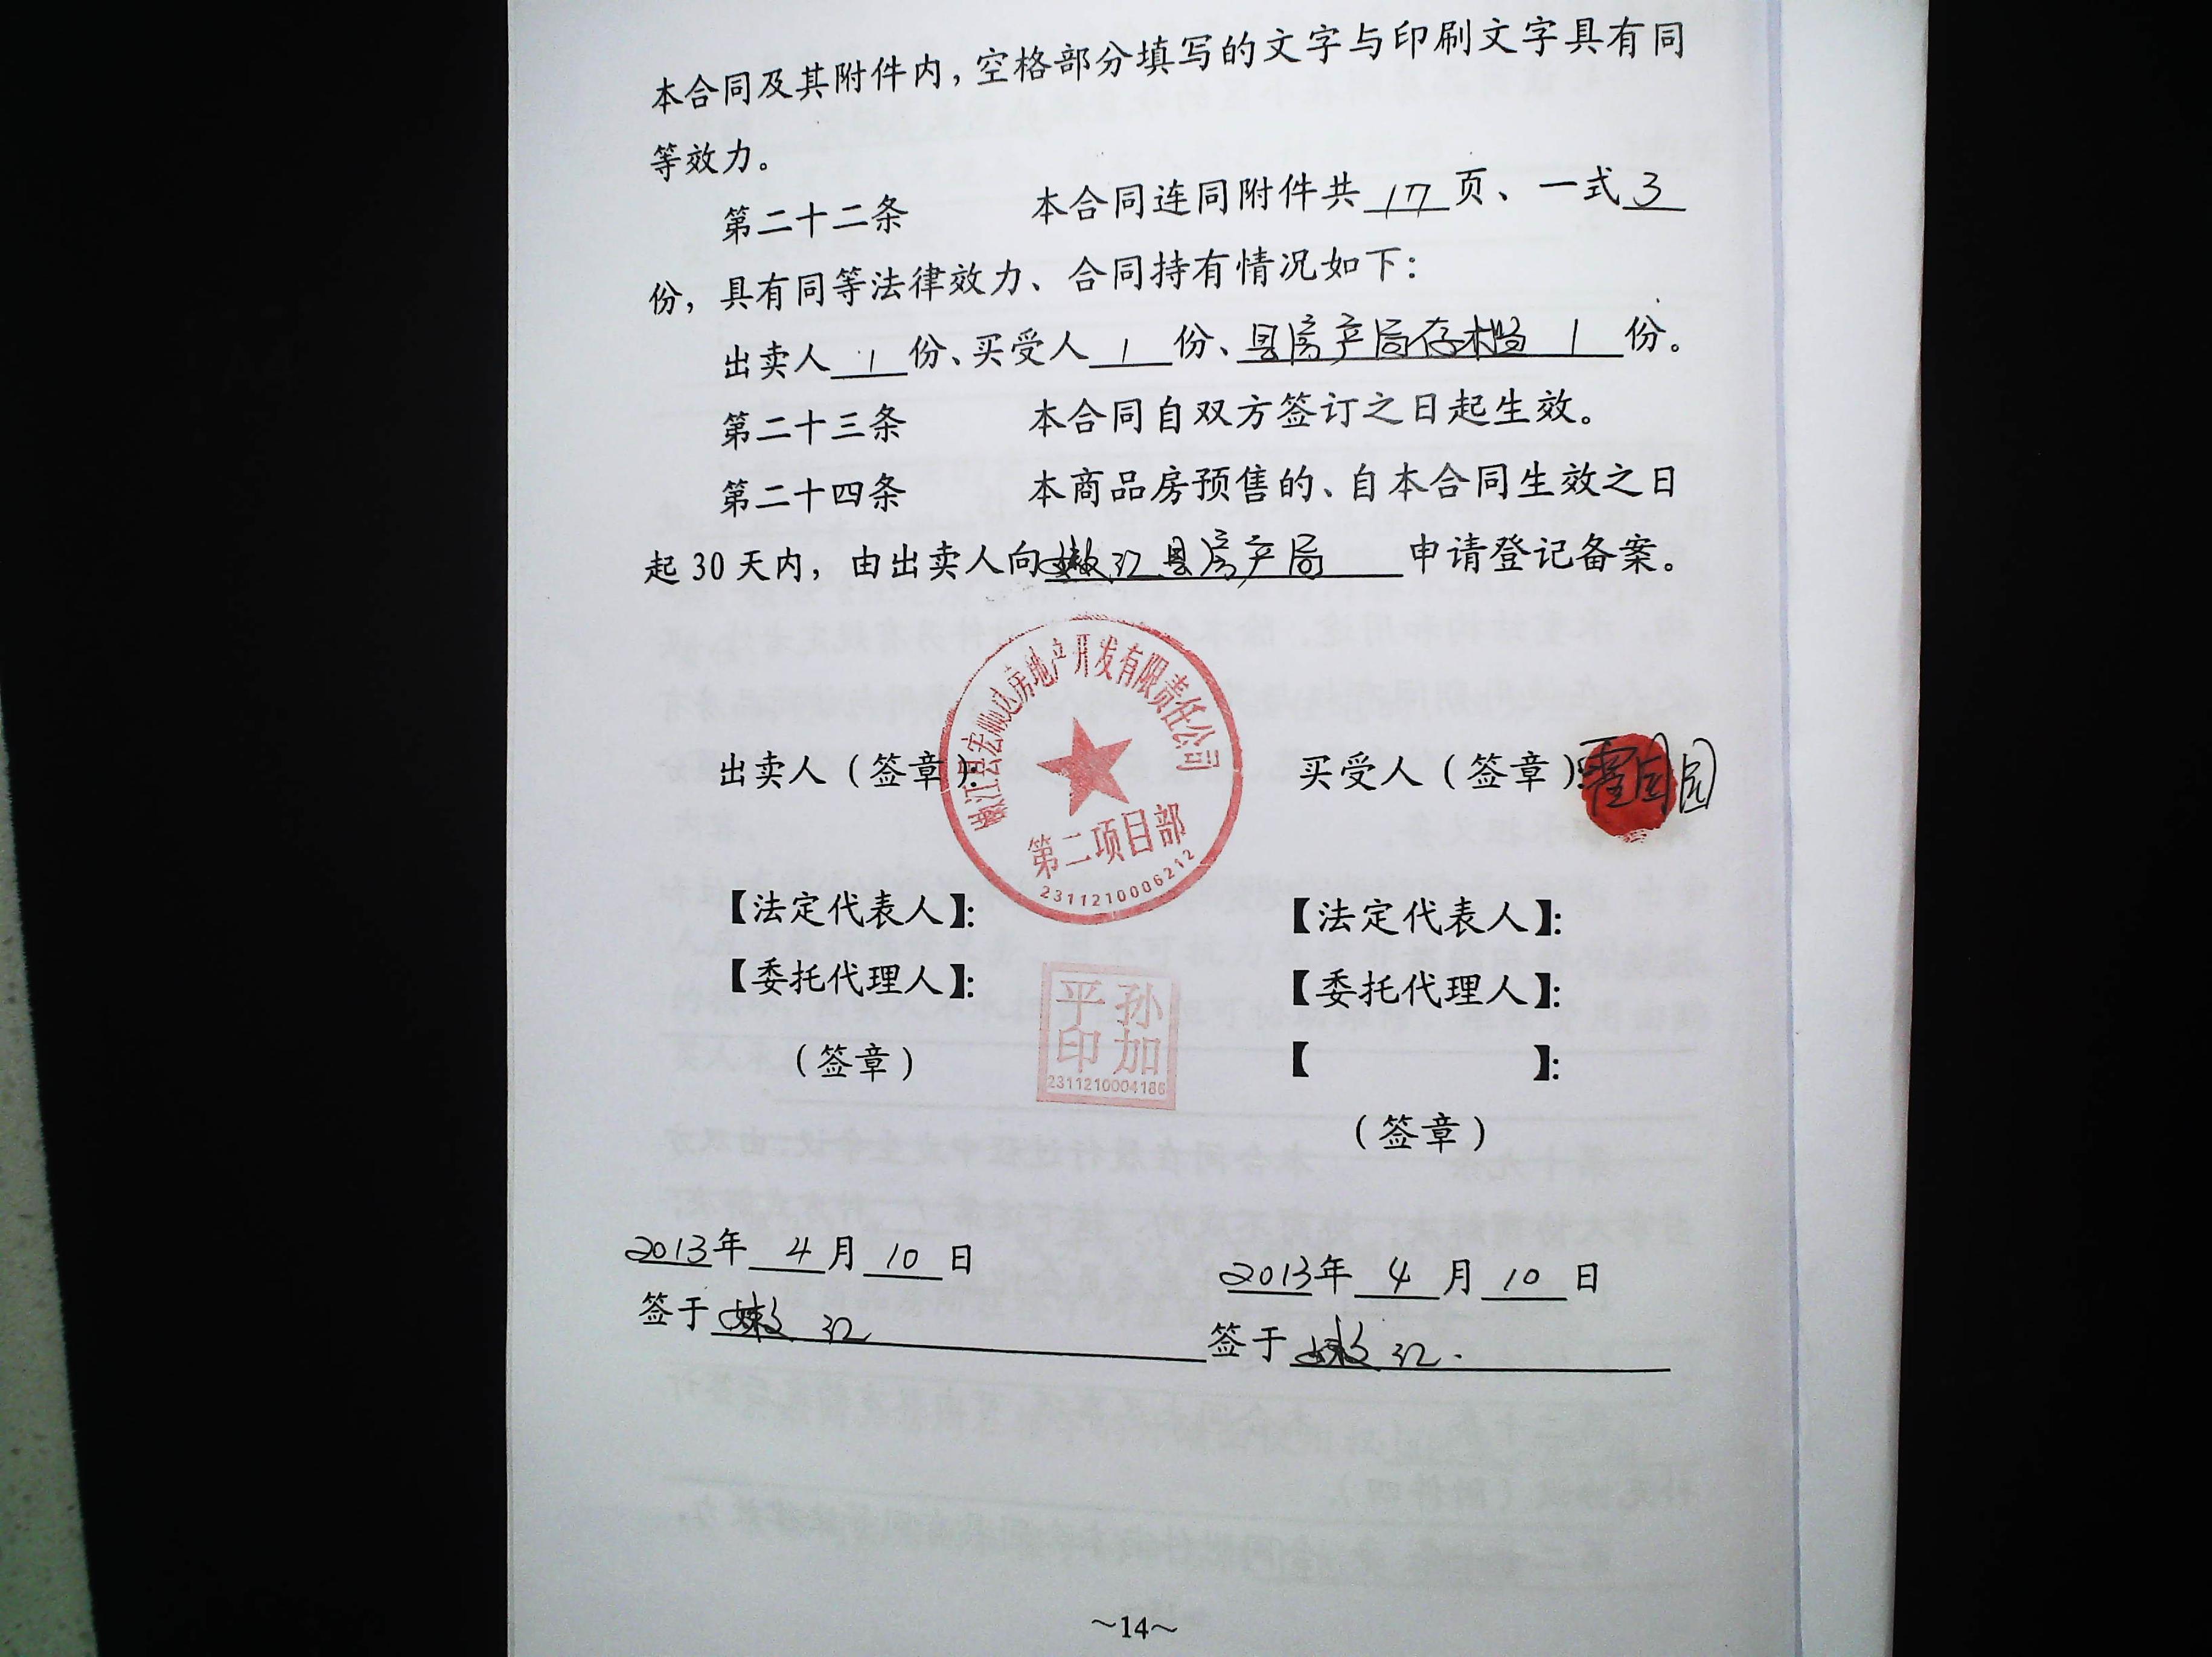 本合同及其附件内，空格部分填写的文字与印刷文字具有同
等效力。
第二十二条 本合同连同附件共 17 页、一式 3
份，具有同等法律效力、合同持有情况如下：
出卖人 1 份、买受人 1 份、县房产局存档 1 份。
第二十三条 本合同自双方签订之日起生效。
第二十四条 本商品房预售的、自本合同生效之日
起30天内，由出卖人向嫩江县房产局 申请登记备案。
嫩江县宏顺达房地产开发有限责任公司
出卖人（签章）： 买受人（签章）：霍园园
第二项目部
2311210006212
【法定代表人】： 【法定代表人】：
【委托代理人】： 【委托代理人】：
孙加
平印
2311210004186
（签章） 【 】：
（签章）
2013年 4 月 10 日 2013年 4 月 10 日
签于 嫩江 签于 嫩江.
～14～